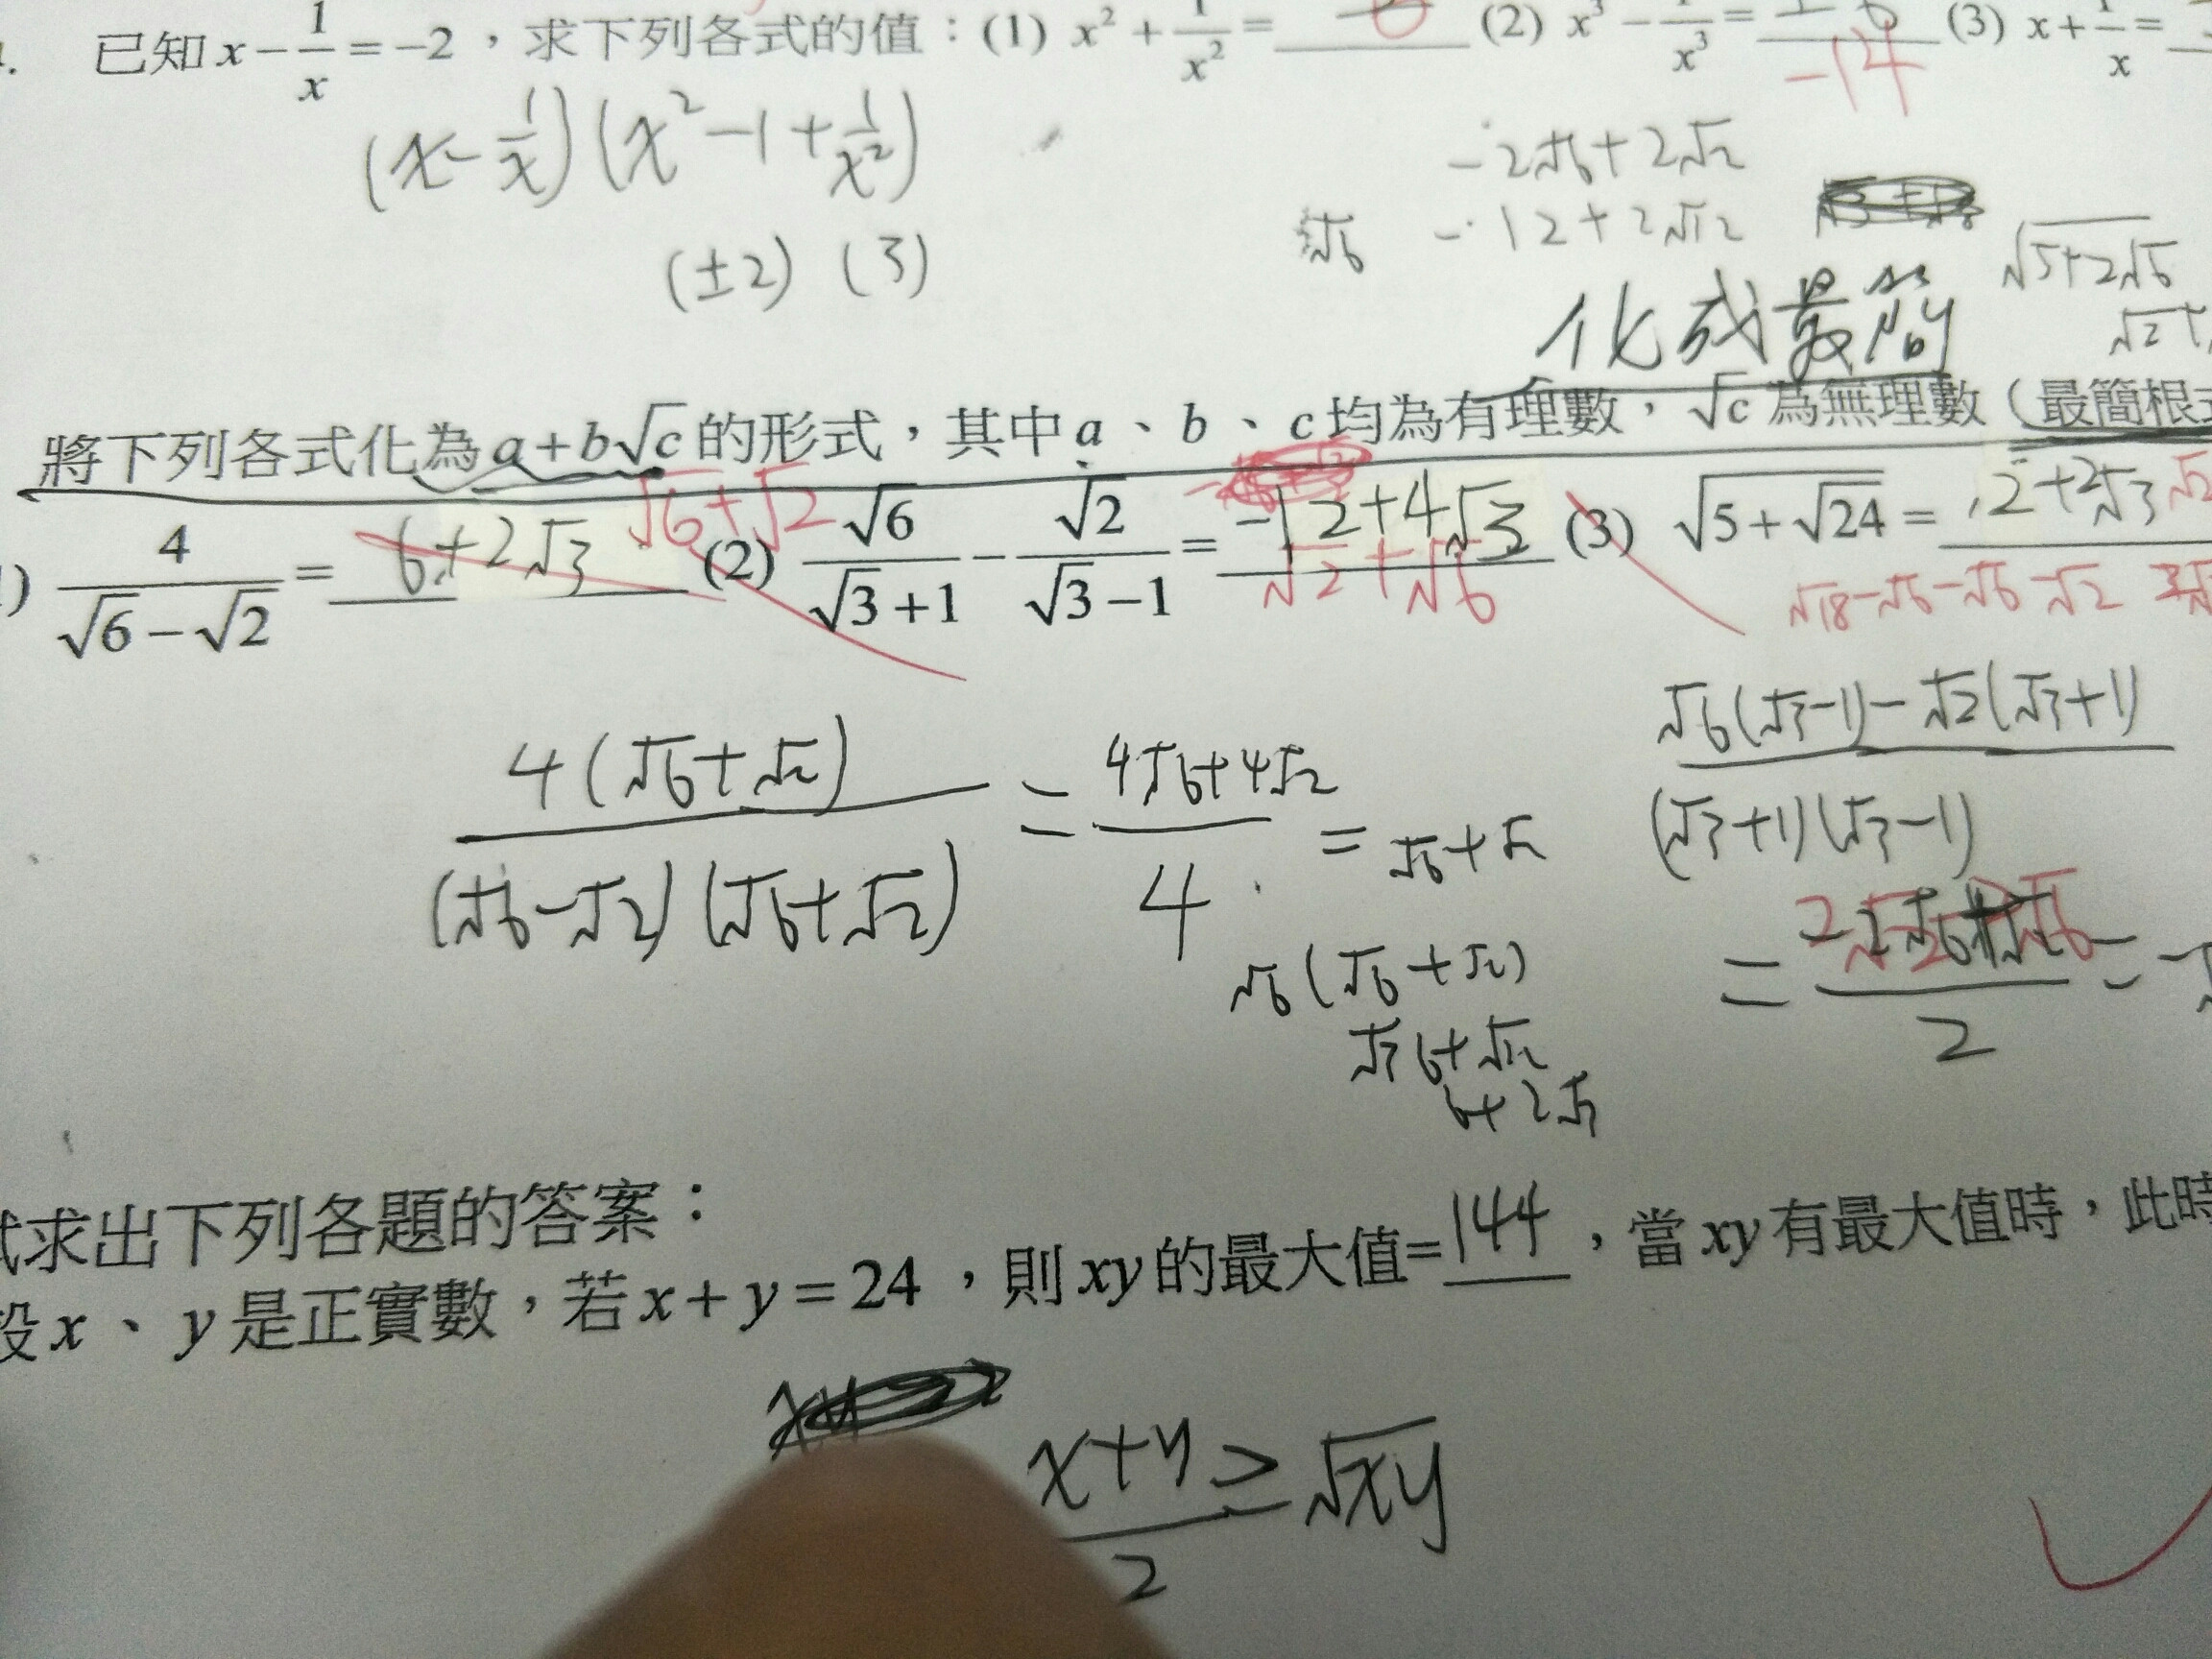 已知 x − 1/x = −2，求下列各式的值：(1) x² + 1/x² = 6 (2) x³ − 1/x³ = −14 (3) x + 1/x =
(x − 1/x)(x² − 1 + 1/x²)
(±2) (3)
−2√6 + 2√2
√6 −12 + 2√12
√5+2√6
√2+
化成最簡
將下列各式化為 a + b√c 的形式，其中 a、b、c 均為有理數，√c 為無理數（最簡根
4/(√6 − √2) = 6 + 2√3 √6 + √2 (2) √6/(√3 + 1) − √2/(√3 − 1) = −12 + 4√3 (3) √(5 + √24) = 2 + 2√3
√2 + √6 √18 − √6 − √6 − √2
4(√6 + √2)/((√6 − √2)(√6 + √2)) = (4√6 + 4√2)/4 = √6 + √2
(√6(√3 − 1) − √2(√3 + 1))/((√3 + 1)(√3 − 1))
√6(√6 + √2)
√36 + √12
6 + 2√3
試求出下列各題的答案：
設 x、y 是正實數，若 x + y = 24，則 xy 的最大值= 144，當 xy 有最大值時，此時
(x + y)/2 ≥ √xy